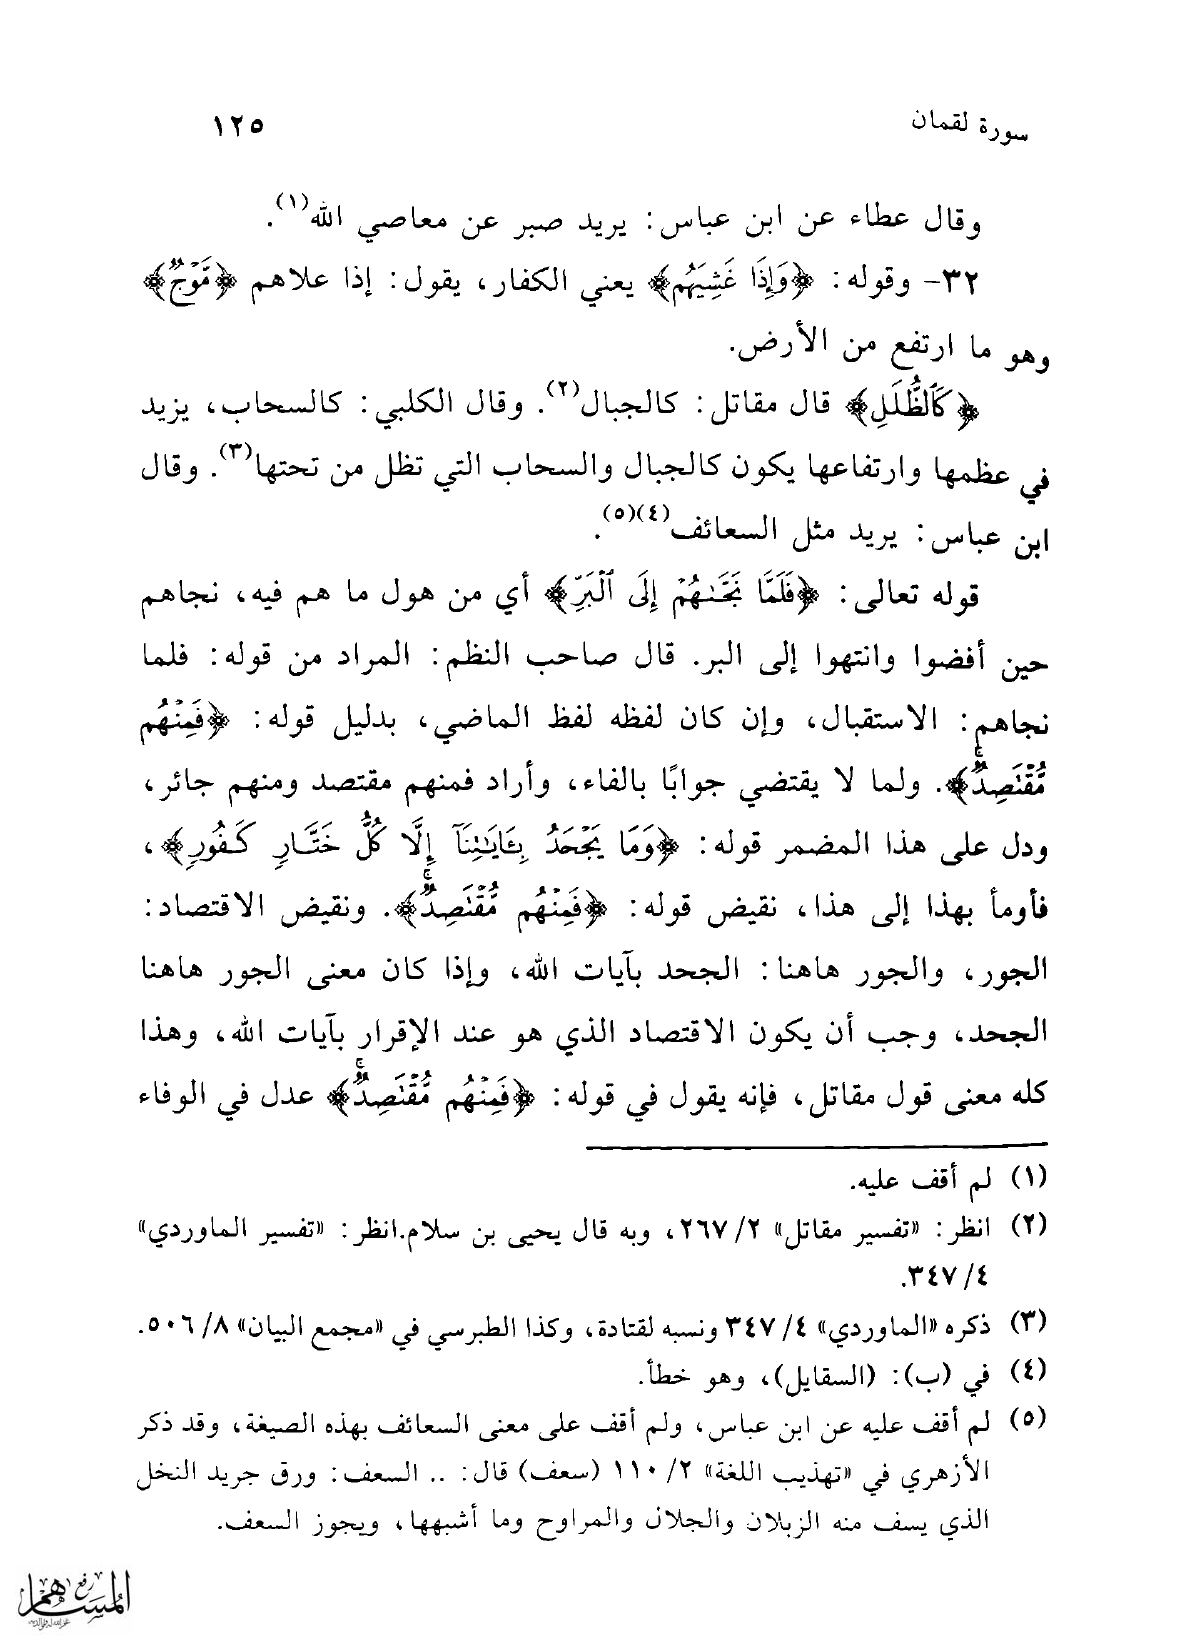 سورة لقمان ١٢٥
وقال عطاء عن ابن عباس: يريد صبر عن معاصي الله(١).
٣٢- وقوله: ﴿وَإِذَا غَشِيَهُم﴾ يعني الكفار، يقول: إذا علاهم ﴿مَّوْجٌ﴾
وهو ما ارتفع من الأرض.
﴿كَالظُّلَلِ﴾ قال مقاتل: كالجبال(٢). وقال الكلبي: كالسحاب، يزيد
في عظمها وارتفاعها يكون كالجبال والسحاب التي تظل من تحتها(٣). وقال
ابن عباس: يريد مثل السعائف(٤)(٥).
قوله تعالى: ﴿فَلَمَّا نَجَّىٰهُمْ إِلَى ٱلْبَرِّ﴾ أي من هول ما هم فيه، نجاهم
حين أفضوا وانتهوا إلى البر. قال صاحب النظم: المراد من قوله: فلما
نجاهم: الاستقبال، وإن كان لفظه لفظ الماضي، بدليل قوله: ﴿فَمِنْهُم
مُّقْتَصِدٌۚ﴾. ولما لا يقتضي جوابًا بالفاء، وأراد فمنهم مقتصد ومنهم جائر،
ودل على هذا المضمر قوله: ﴿وَمَا يَجْحَدُ بِـَٔايَـٰتِنَآ إِلَّا كُلُّ خَتَّارٍ كَفُورٍ﴾،
فأومأ بهذا إلى هذا، نقيض قوله: ﴿فَمِنْهُم مُّقْتَصِدٌۚ﴾. ونقيض الاقتصاد:
الجور، والجور هاهنا: الجحد بآيات الله، وإذا كان معنى الجور هاهنا
الجحد، وجب أن يكون الاقتصاد الذي هو عند الإقرار بآيات الله، وهذا
كله معنى قول مقاتل، فإنه يقول في قوله: ﴿فَمِنْهُم مُّقْتَصِدٌۚ﴾ عدل في الوفاء
(١) لم أقف عليه.
(٢) انظر: «تفسير مقاتل» ٢/ ٢٦٧، وبه قال يحيى بن سلام.انظر: «تفسير الماوردي»
٤/ ٣٤٧.
(٣) ذكره «الماوردي» ٤/ ٣٤٧ ونسبه لقتادة، وكذا الطبرسي في «مجمع البيان» ٨/ ٥٠٦.
(٤) في (ب): (السقايل)، وهو خطأ.
(٥) لم أقف عليه عن ابن عباس، ولم أقف على معنى السعائف بهذه الصيغة، وقد ذكر
الأزهري في «تهذيب اللغة» ٢/ ١١٠ (سعف) قال: .. السعف: ورق جريد النخل
الذي يسف منه الزبلان والجلال والمراوح وما أشبهها، ويجوز السعف.